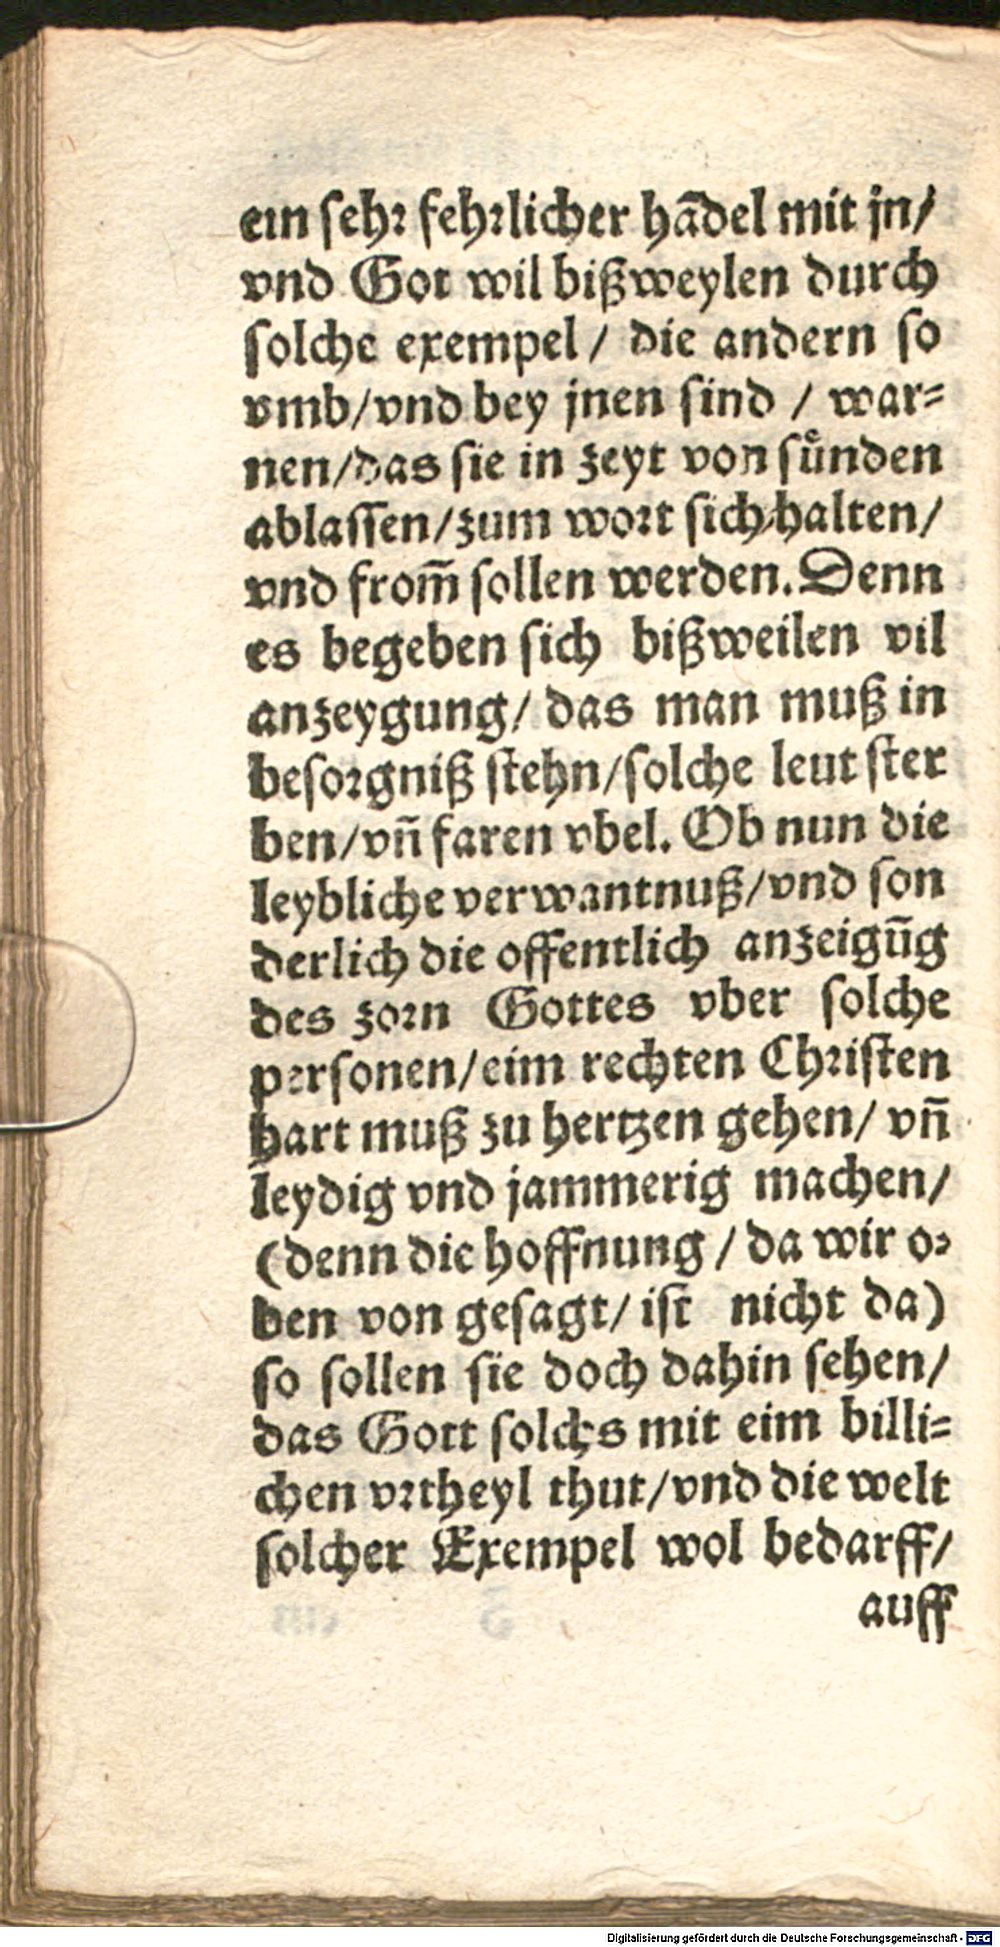 ein sehr fehrlicher hādel mit jn/
vnd Got wil bißweylen durch
solche exempel / die andern so
vmb/vnd bey jnen sind / war=
nen/das sie in zeyt von sůnden
ablassen/zum wort sich halten/
vnd from̄ sollen werden. Denn
es begeben sich bißweilen vil
anzeygung/ das man muß in
besorgniß stehn/solche leut ster
ben/vn̄ faren vbel. Ob nun die
leybliche verwantnuß/vnd son
derlich die offentlich anzeigūg
des zorn Gottes vber solche
personen/eim rechten Christen
hart muß zu hertzen gehen/ vn̄
leydig vnd jammerig machen/
(denn die hoffnung / da wir o=
ben von gesagt/ ist nicht da)
so sollen sie doch dahin sehen/
das Gott solchs mit eim billi=
chen vrtheyl thut/vnd die welt
solcher Exempel wol bedarff/
auff
Digitalisierung gefördert durch die Deutsche Forschungsgemeinschaft - DFG